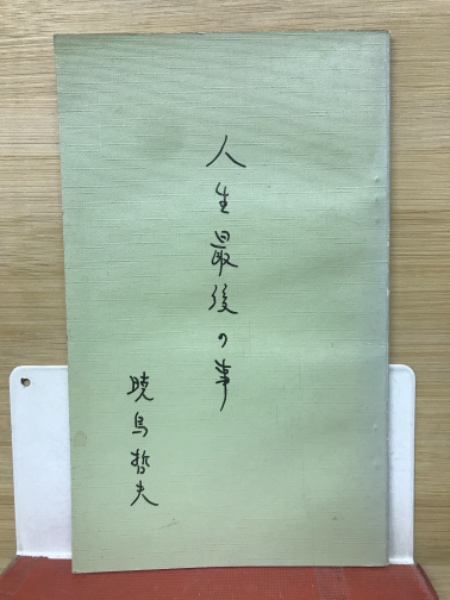 人生最後の事
暁烏哲夫